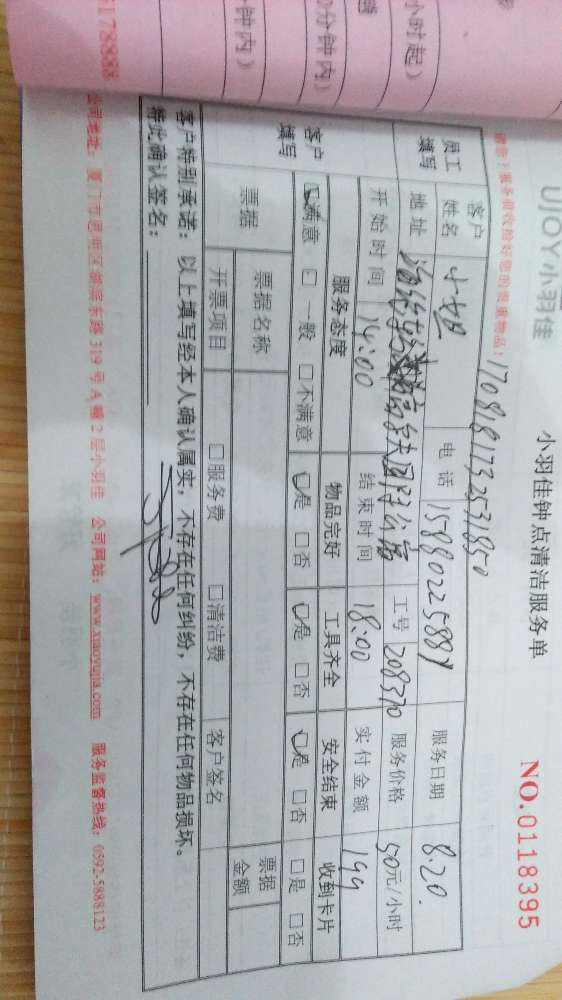 UJOY小羽佳
小羽佳钟点清洁服务单
NO.0118395
1708181732531850
员工填写
客户姓名
电话
服务日期 8.20.
地址
工号 208370
服务价格 50元/小时
开始时间 14:00
结束时间 18:00
实付金额 199
客户填写
服务态度 物品完好 工具齐全 安全结束 收到卡片
☑满意 □一般 □不满意 ☑是 □否 ☑是 □否 ☑是 □否 □是 □否
票据
票据名称
票据金额
开票项目 □服务费 □清洁费 客户签名
客户特别承诺：以上填写经本人确认属实，不存在任何纠纷，不存在任何物品损坏。
特此确认签名：
公司网站：www.xiaoyujia.com 服务监督热线：0592-5888123
小时起）
0分钟内）
分钟内）